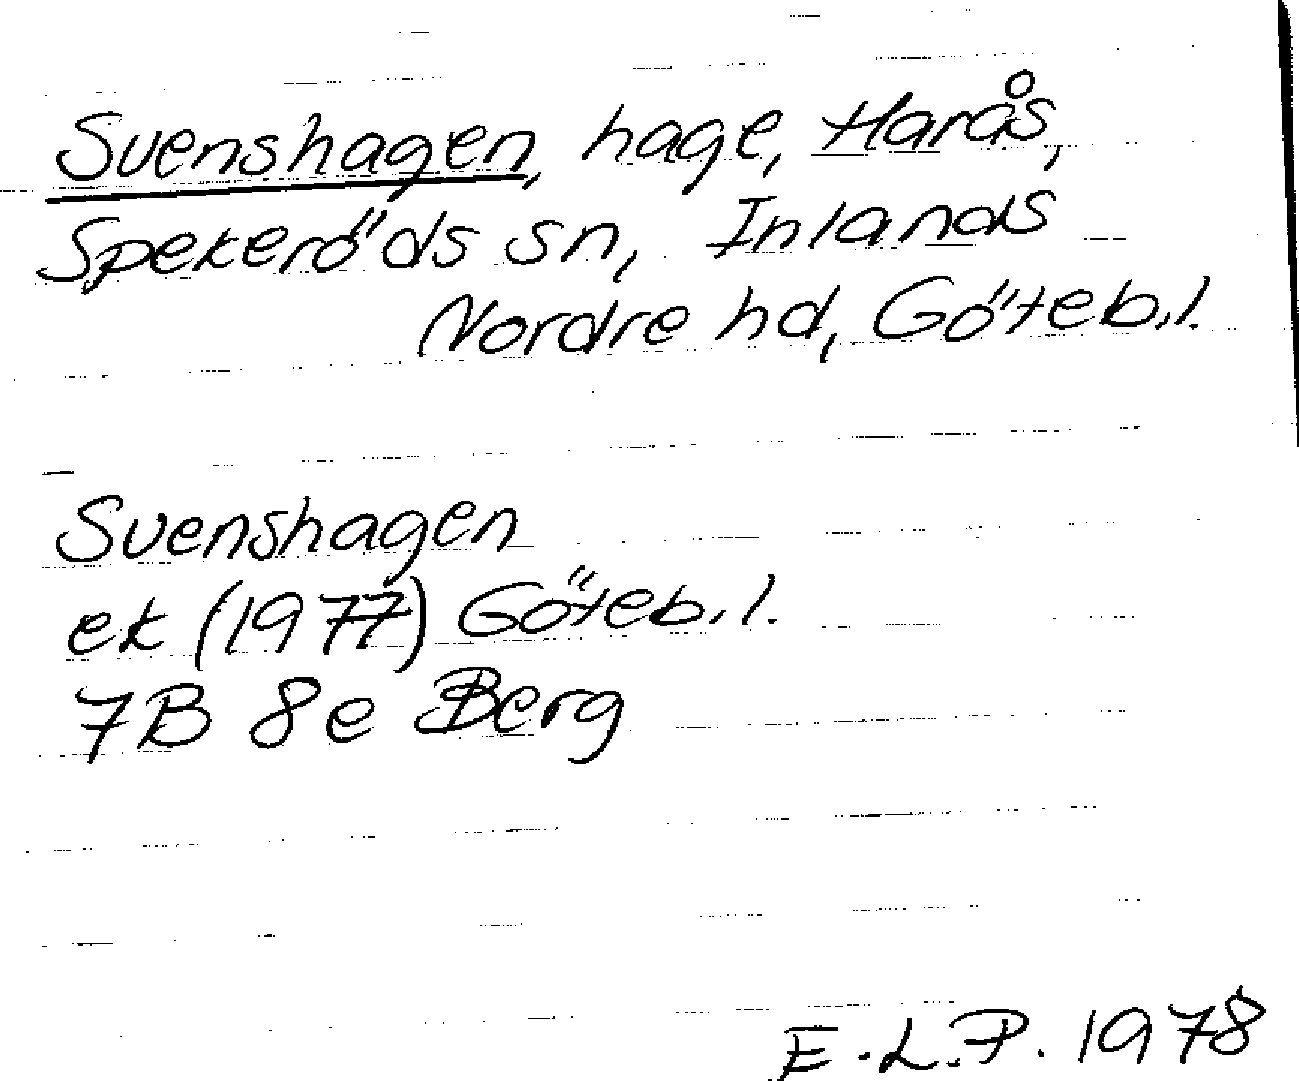 Svenshagen, hage, Harås,
Spekeröds sn, Inlands
Nordre hd, Göteb.l.
Svenshagen
ek (1977) Göteb.l.
7B 8e Berg
E.L.P. 1978